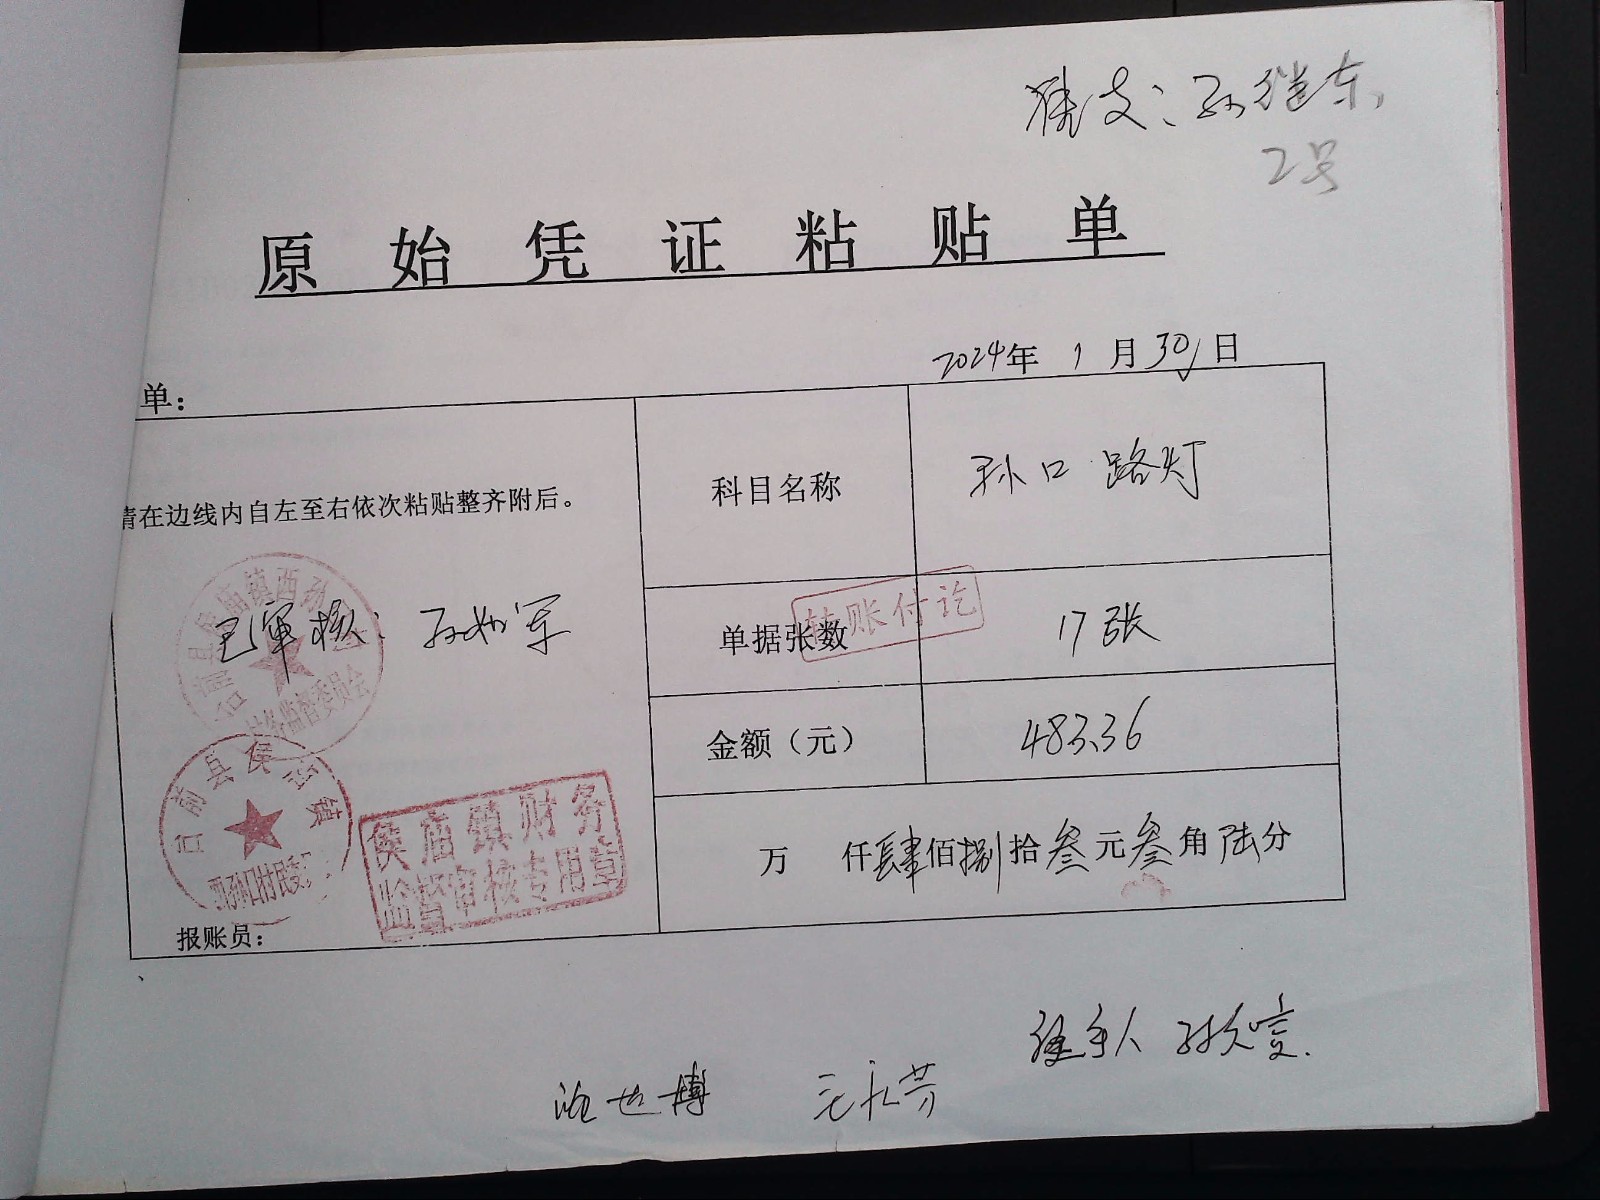 准支：孙继东
2号
原始凭证粘贴单
2024年 1月30日
单：
科目名称 孙口路灯
请在边线内自左至右依次粘贴整齐附后。
台前县侯庙镇西孙
村务监督委员会
已审核：孙
转账付讫
单据张数 17张
金额（元） 483.36
台前县侯庙镇
西孙口村民委
侯庙镇财务
监督审核专用章
万 仟肆佰捌拾叁元叁角陆分
报账员：
经手人 孙